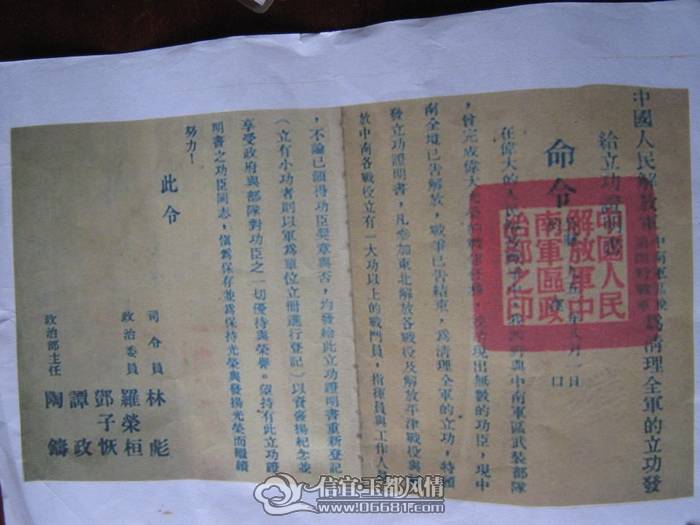 中國人民解放軍中南軍區 第四野戰軍 為清理全軍的立功發
給立功證明書
命令
在偉大的人民解放戰爭中
與中南軍區武裝部隊
,曾完成偉大
現出無數的功臣,現中
南全境已告解放,戰爭已告結束,為清理全軍的立功,特頒
發立功證明書,凡參加東北解放各戰役及解放平津戰役與解
放中南各戰役立有一大功以上的戰鬥員,指揮員與工作人員
,不論已領得功臣獎章與否,均發給此立功證明書重新登記
(立有小功者則以軍為單位立冊進行登記)以資褒揚紀念並
享受政府與部隊對功臣之一切優待與榮譽。須持有此立功證
明書之功臣同志,愼為保存並為保持光榮與發揚光榮而繼續
努力!
此令
司令員 林彪
政治委員 羅榮桓
鄧子恢
譚政
政治部主任 陶鑄
中國人民
解放軍中
南軍區政
治部之印
信宜·玉都风情
www.06681.com